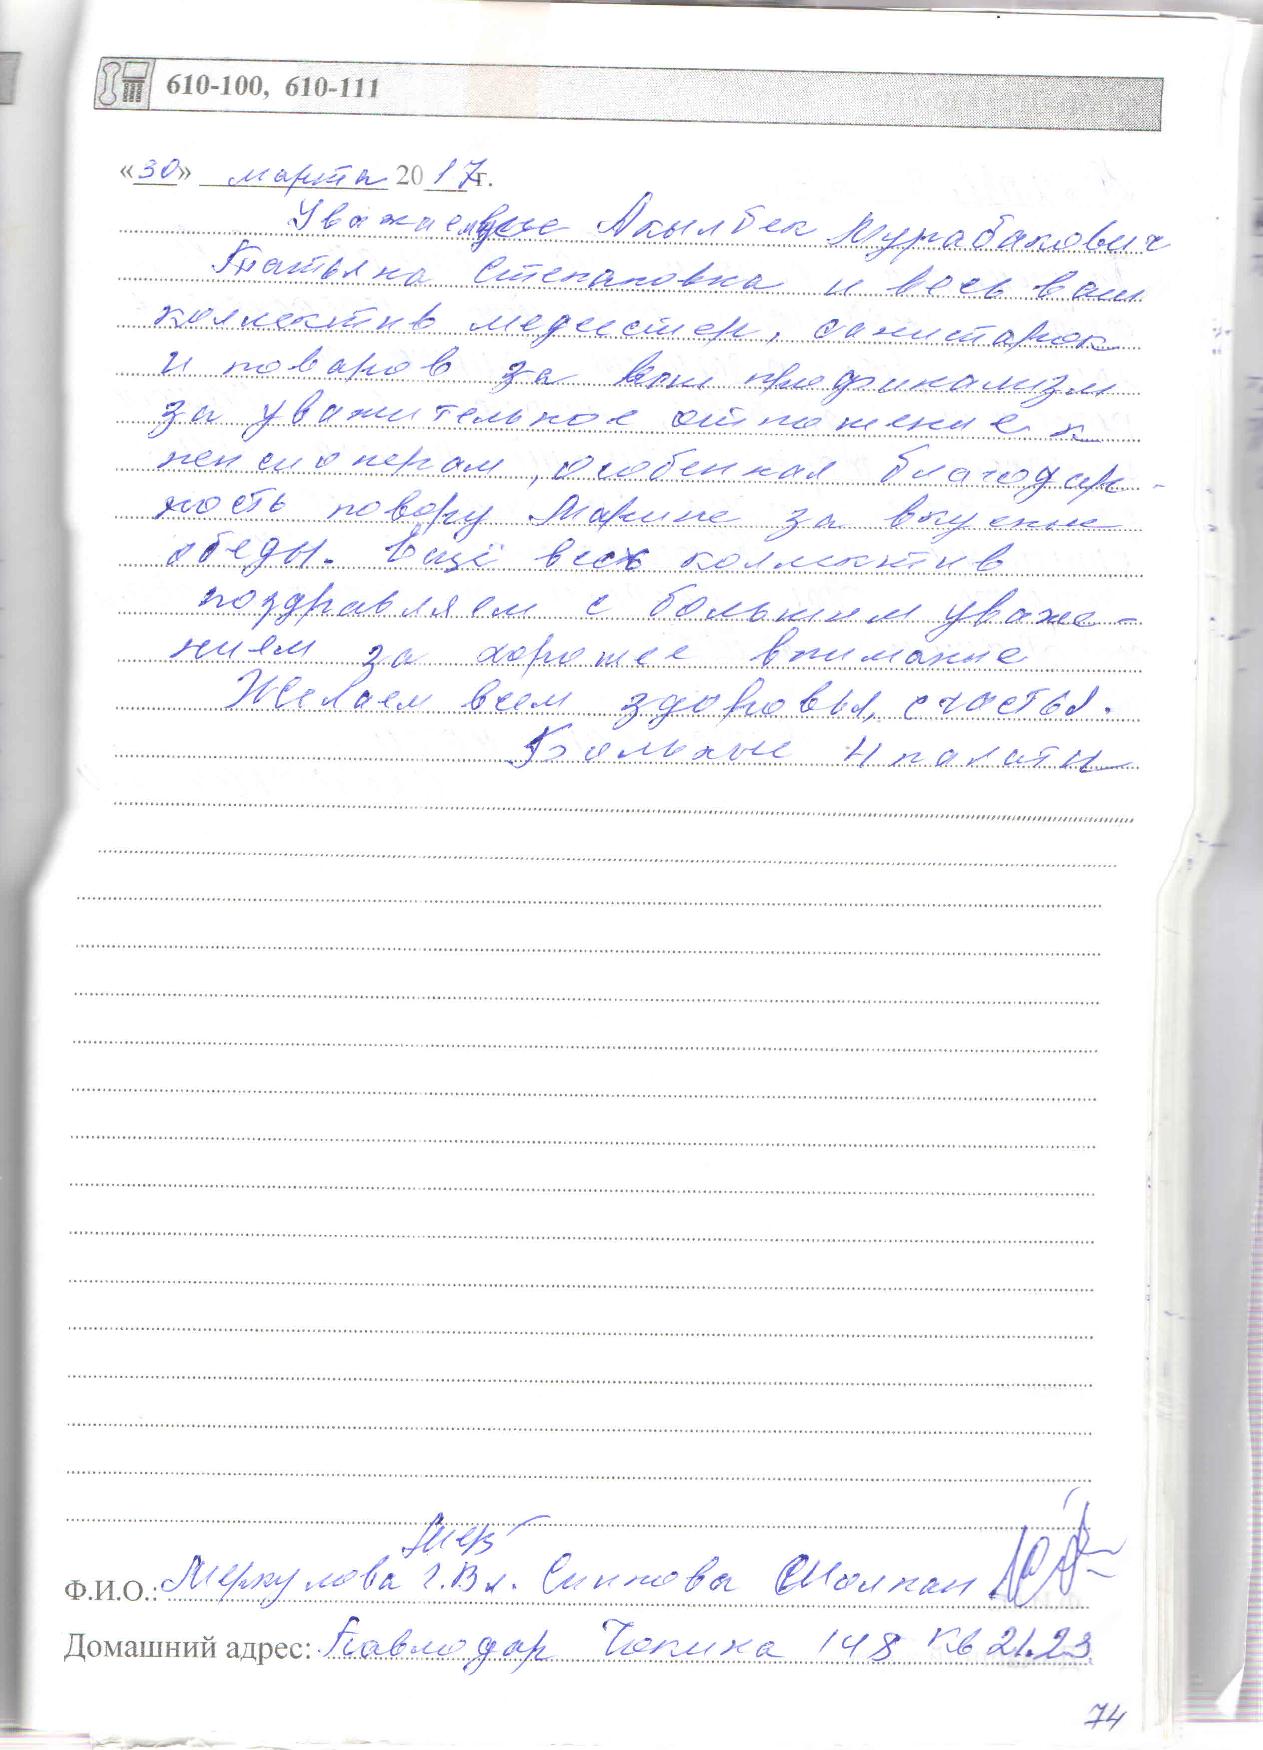 610-100, 610-111
«30» марта 2017г.
Уважаемые Акылбек Мурабакович
Татьяна Степановна и весь ваш
коллектив медсестер, санитарок
и поваров за ваш профинализм
за уважительное отношение к
пенсионерам, особенная благодар-
ность повору Марине за вкусные
обеды. Ещё весь коллектив
поздравляем с большим уваже-
нием за хорошее внимание
Желаем всем здоровья, счастья.
Больные 4 палаты
Ф.И.О.: Меркулова Г.Вл. Сиитова Шолпан
Домашний адрес: Павлодар Чокина 148 кв 21.23
74